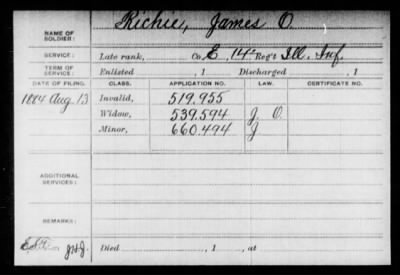 NAME OF SOLDIER: Richie, James O.
SERVICE: Late rank, Co. E, 14" Reg't Ill. Inf.
TERM OF SERVICE: Enlisted , 1 Discharged , 1
DATE OF FILING. CLASS. APPLICATION NO. LAW. CERTIFICATE NO.
1884 Aug. 13 Invalid, 519.955
Widow, 539.594 J. O.
Minor, 660.494 J
ADDITIONAL SERVICES:
REMARKS:
Died , 1 , at